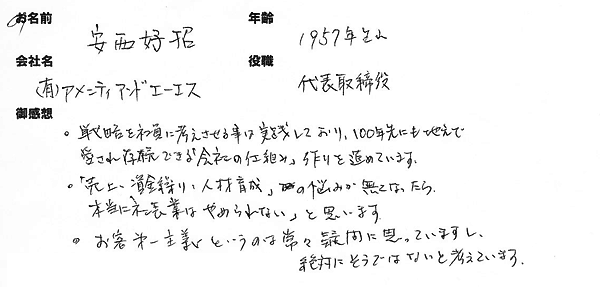 お名前 安西好昭 年齢 1957年生れ
会社名 役職
(有)アメニティアンドエーエス 代表取締役
御感想
・戦略を社員に考えさせる事は実践しており、100年先にも地元で
愛され存続できる「会社の仕組み」作りを進めています。
・「売上、資金繰り、人材育成」の悩みが無くなったら
本当に「社長業はやめられない」と思います
・お客第一主義というのは常々疑問に思っていますし、
絶対にそうではないと考えています。